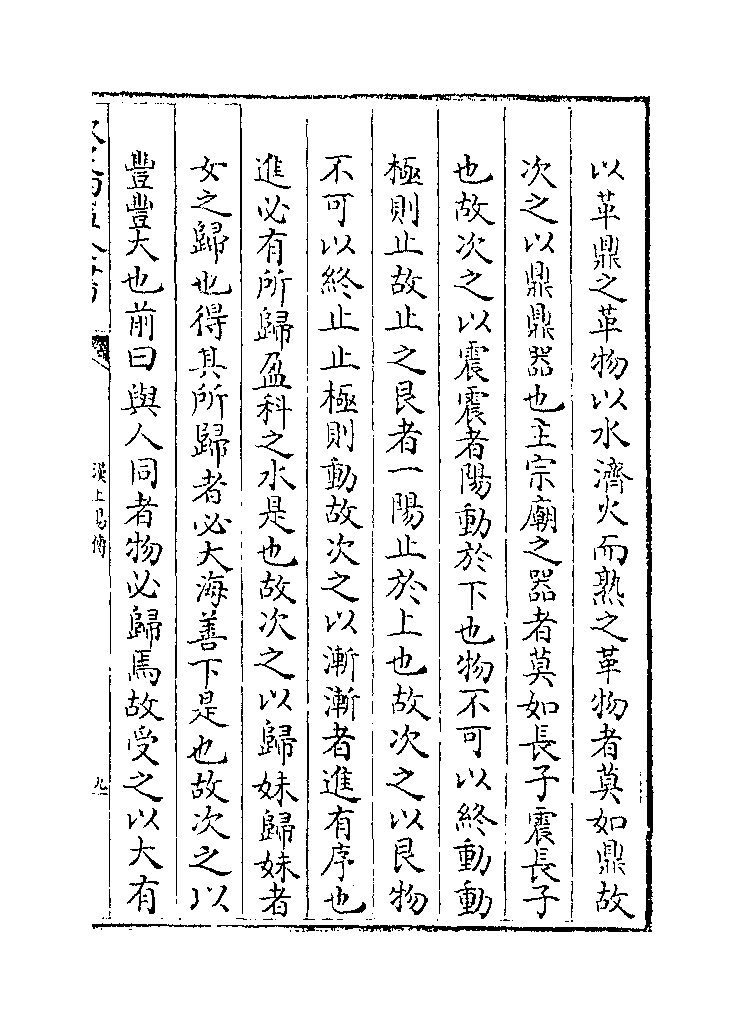 以革鼎之革物以水濟火而熟之革物者莫如鼎故
次之以鼎鼎器也主宗廟之器者莫如長子震長子
也故次之以震震者陽動於下也物不可以終動動
極則止故止之艮者一陽止於上也故次之以艮物
不可以終止止極則動故次之以漸漸者進有序也
進必有所歸盈科之水是也故次之以歸妹歸妹者
女之歸也得其所歸者必大海善下是也故次之以
豐豐大也前曰與人同者物必歸焉故受之以大有
漢上易傳
九